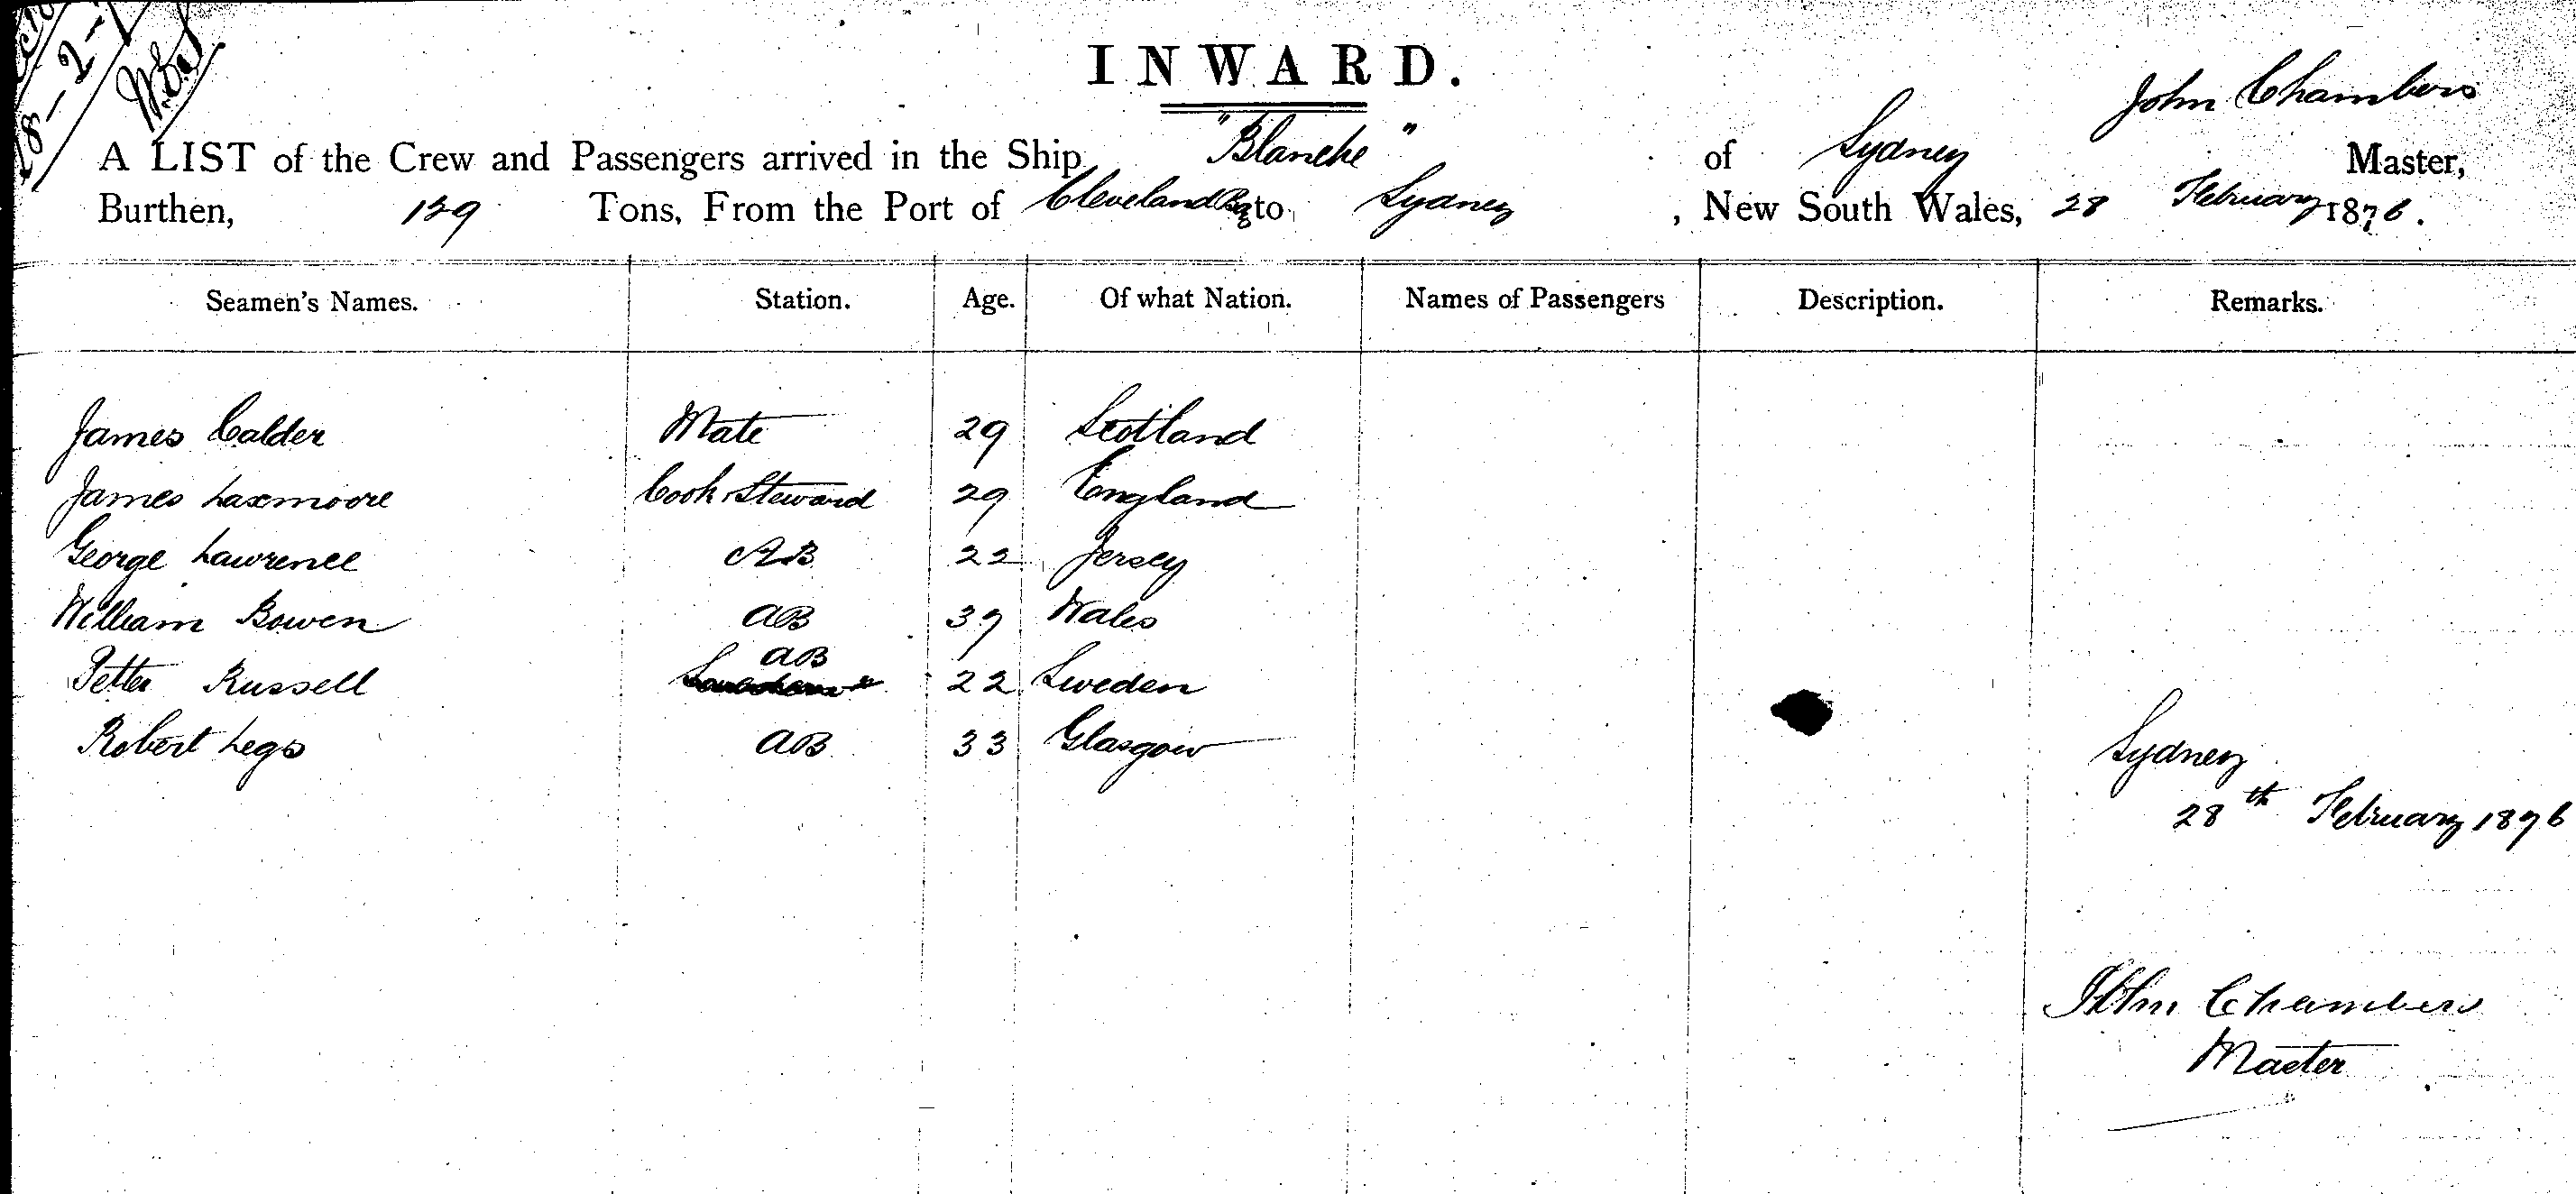 18-2-
INWARD.
John Chambers
A LIST of the Crew and Passengers arrived in the Ship "Blanche" of Sydney Master,
Burthen, 129 Tons, From the Port of Cleveland Bay to Sydney, New South Wales, 28 February 1876.
Seamen's Names. Station. Age. Of what Nation. Names of Passengers Description. Remarks.
James Calder Mate 29 Scotland
James Laxmoore Cook Steward 29 England
George Lawrence AB 22 Jersey
William Bowen AB 37 Wales
AB
Petter Russell 22 Sweden
Robert Legs AB 33 Glasgow
Sydney
28th February 1876
John Chambers
Master